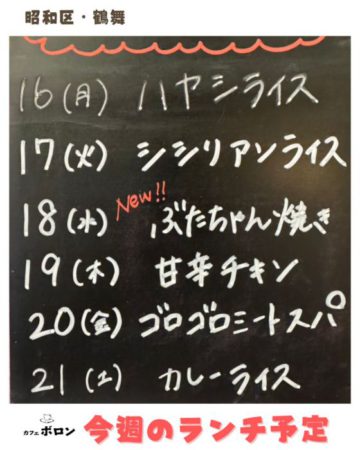 昭和区・鶴舞
16(月) ハヤシライス
17(火) シシリアンライス
New!!
18(水) ぶたちゃん焼き
19(木) 甘辛チキン
20(金) ゴロゴロミートスパ
21(土) カレーライス
カフェ ポロン 今週のランチ予定